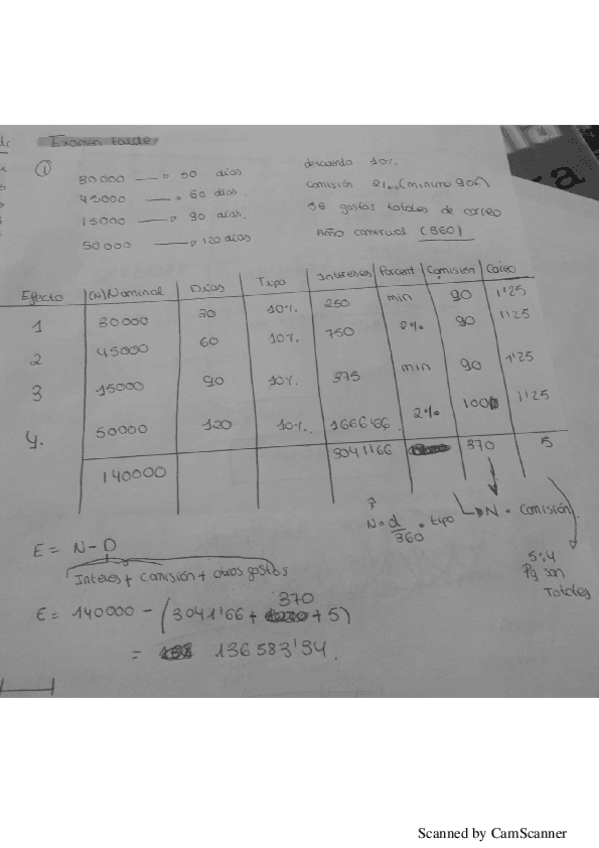 Examen tarde
①
30000 → 30 días
45000 → 60 días.
15000 → 90 días.
50000 → 120 días.
descuento 10%.
Comisión 2‰ (mínimo 90€)
5€ gastos totales de correo
Año comercial (360)
Efecto (N) Nominal Días Tipo Intereses Porcent Comisión Correo
1 30000 30 10% 250 min 90 1'25
2 45000 60 10% 750 2% 90 1'25
3 15000 90 10% 375 min 90 1'25
4. 50000 120 10% 1666'66 2% 100 1'25
140000 3041'66 370 5
N · d/360 · tipo
N · Comisión
5:4
Pq son
Totales
E = N - D
Interes + Comisión + otros gastos
E = 140000 - (3041'66 + 370 + 5)
= 136583'34.
Scanned by CamScanner